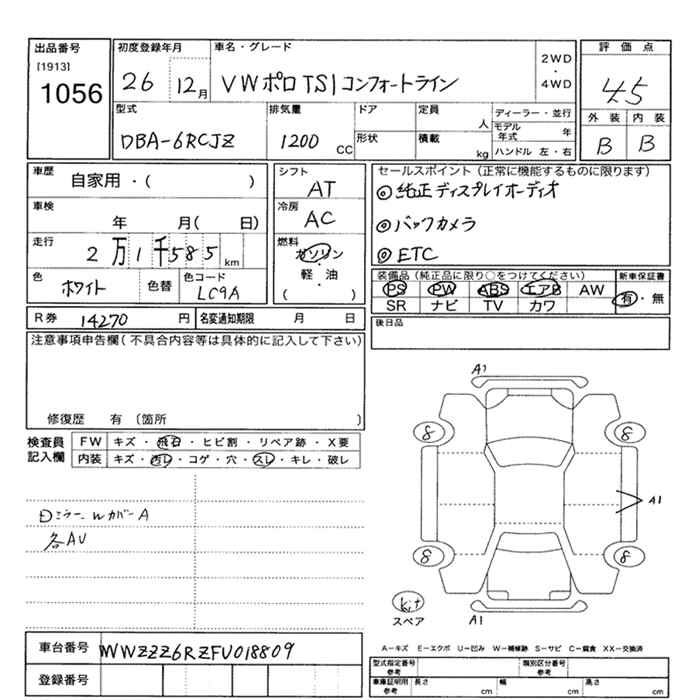 出品番号
[1913]
1056
初度登録年月
26 12月
車名・グレード
VWポロTSIコンフォートライン
2WD
・
4WD
評価点
4.5
外装 内装
B B
型式
DBA-6RCJZ
排気量
1200 CC
ドア
形状
定員
人
積載
kg
ディーラー・並行
モデル年式 年
ハンドル 左・右
車歴
自家用・( )
車検
年 月( 日)
走行
2万1千585km
色
ホワイト
色替
色コード
LC9A
シフト
AT
冷房
AC
燃料
ガソリン
・
軽・油
( )
セールスポイント(正常に機能するものに限ります)
◎純正ディスプレイオーディオ
◎バックカメラ
◎ETC
装備品(純正品に限り○をつけてください)
PS PW ABS エアB AW
SR ナビ TV カワ
新車保証書
有・無
後日品
R券 14270 円
名変通知期限 月 日
注意事項申告欄(不具合内容等は具体的に記入して下さい)
修復歴 有 (箇所 )
検査員記入欄
FW キズ・飛石・ヒビ割・リペア跡・X要
内装 キズ・汚レ・コゲ・穴・スレ・キレ・破レ
ミラーWカバーA
各AU
A1
8 8
A1
8 8
Kit
スペア
A1
A−キズ E−エクボ U−凹み W−補修跡 S−サビ C−腐食 XX−交換済
車台番号 WVWZZZ6RZFU018809
登録番号
型式指定番号 参考
類別区分番号 参考
車庫証明用 参考
長さ cm
幅 cm
高さ cm